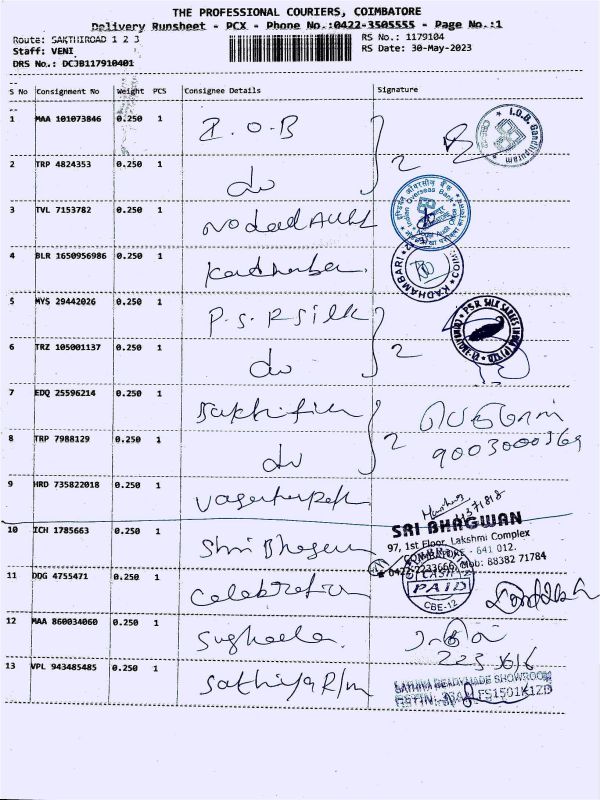 THE PROFESSIONAL COURIERS, COIMBATORE
Delivery Runsheet - PCX - Phone No.:0422-3505555 - Page No.:1
Route: SAKTHIROAD 1 2 3
RS No.: 1179104
Staff: VENI
RS Date: 30-May-2023
DRS No.: DCJB117910401
S No Consignment No Weight PCS Consignee Details Signature
1 MAA 101073846 0.250 1 I.O.B
I.O.B. Gandhipuram
2 TRP 4824353 0.250 1 do 2
3 TVL 7153782 0.250 1
Indian Overseas Bank
4 BLR 1650956986 0.250 1 Kadhambari
KADHAMBARI
5 MYS 29442026 0.250 1 P.S.R Silk
PSR SILK SAREES INDIA (P) LTD
6 TRZ 105001137 0.250 1 do 2
7 EDQ 25596214 0.250 1
8 TRP 7988129 0.250 1 do 2
9 HRD 735822018 0.250 1
SRI BHAGWAN
97, 1st Floor, Lakshmi Complex
COIMBATORE - 641 012.
Mob: 88382 71784
10 ICH 1785663 0.250 1 Shri Bhagwan
11 DDG 4755471 0.250 1 Celebration
CASH
PAID
CBE-12
12 MAA 860034060 0.250 1 Susheela
13 VPL 943485485 0.250 1 Sathiya R/m
SATHIYA READYMADE SHOWROOM